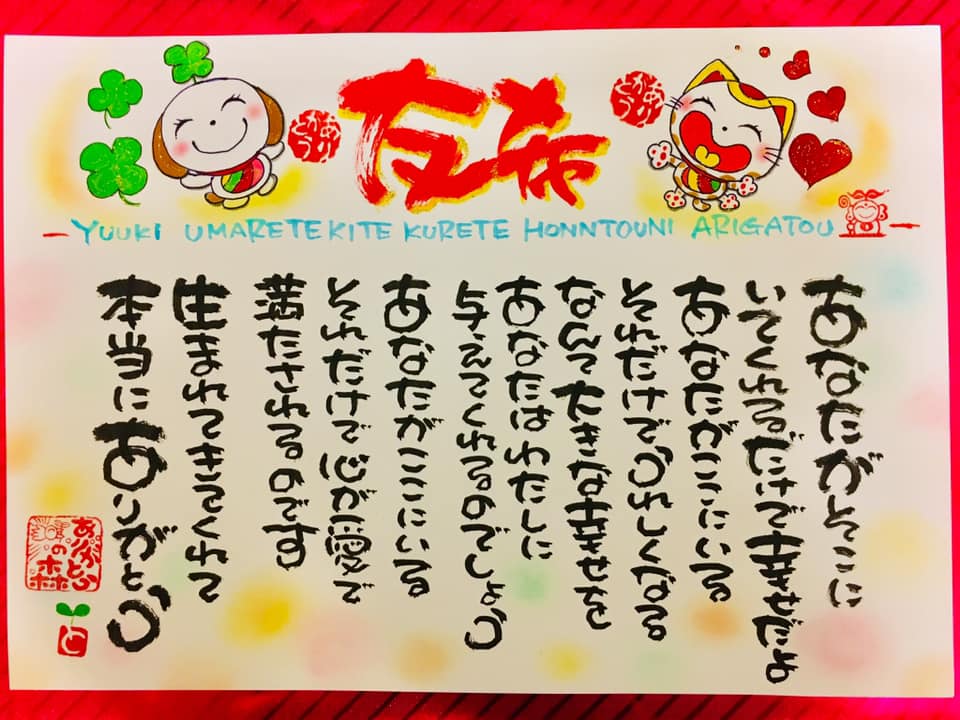 友希
YUUKI UMARETEKITE KURETE HONNTOUNI ARIGATOU
あなたがそこに
いてくれるだけで幸せだよ
あなたがここにいる
それだけでうれしくなる
なんて大きな幸せを
あなたはわたしに
与えてくれるのでしょう
あなたがここにいる
それだけで心が愛で
満たされるのです
生まれてきてくれて
本当にありがとう
ありがとう
の森